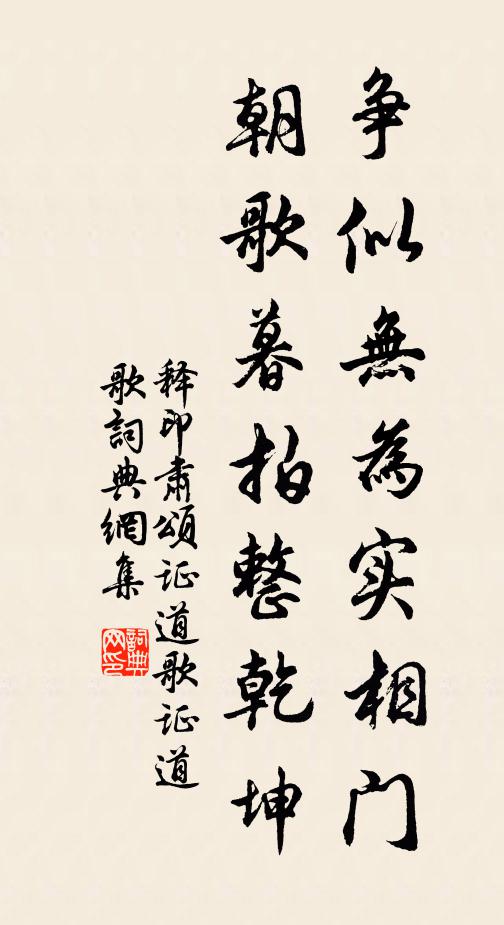 争似無為实相门
朝歌暮拍整乾坤
释印肃颂证道歌证道
歌詞典網集
詞典网印